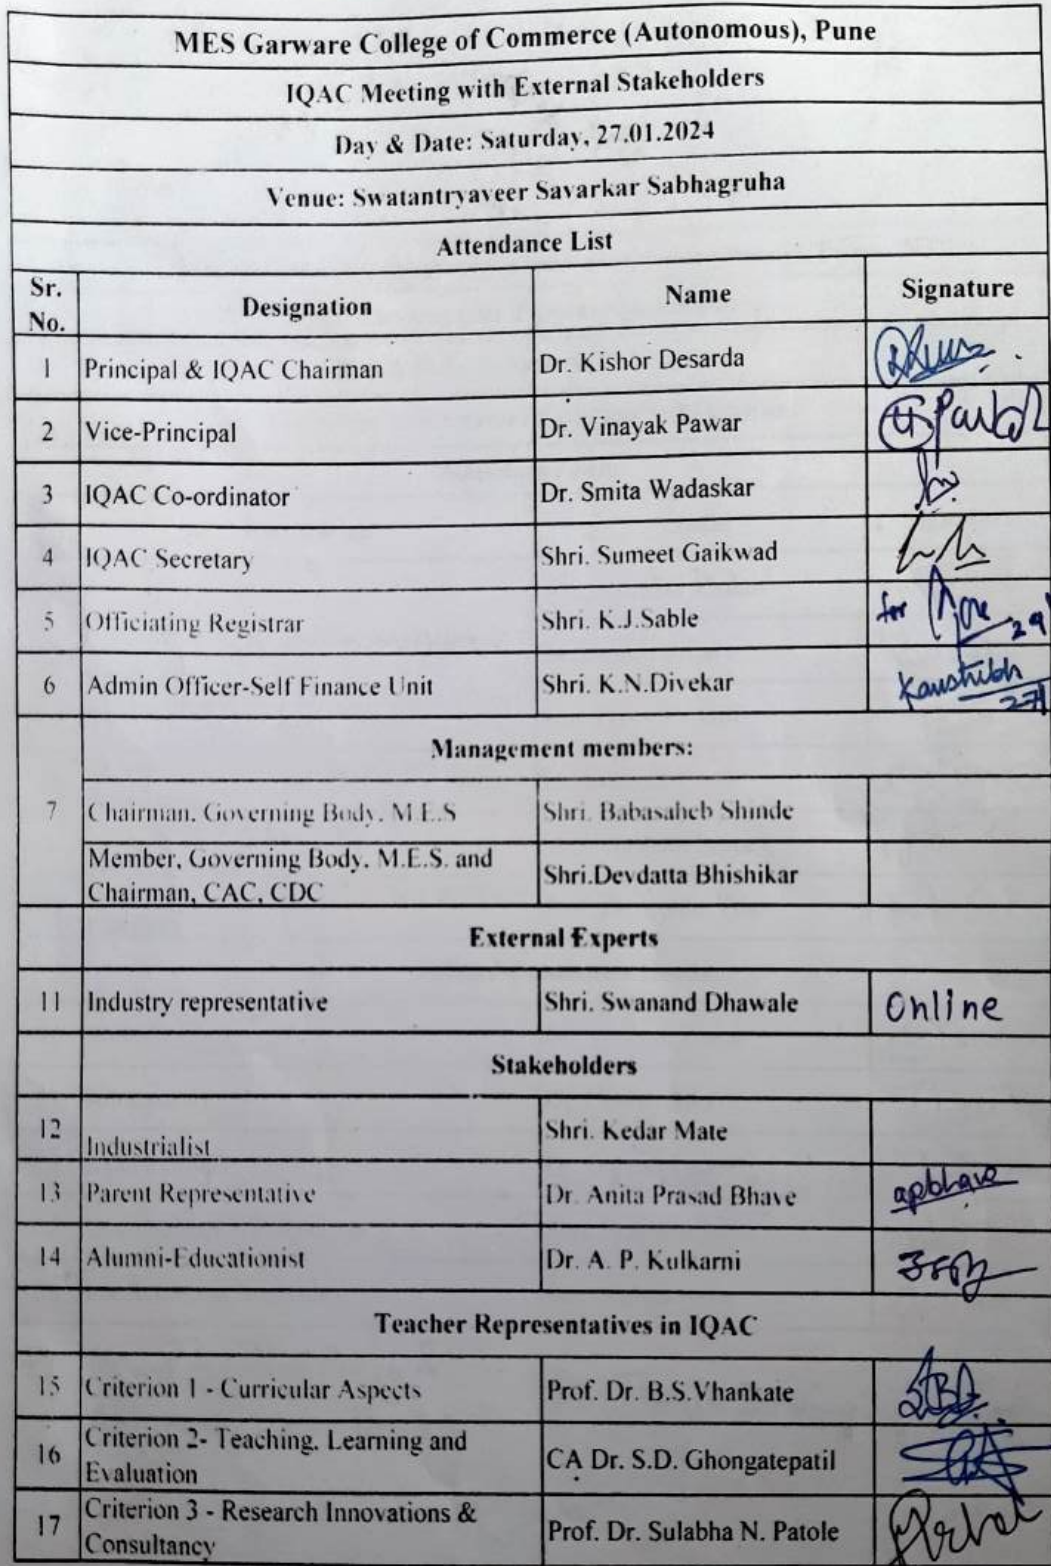 MES Garware College of Commerce (Autonomous), Pune
IQAC Meeting with External Stakeholders
Day & Date: Saturday, 27.01.2024
Venue: Swatantryaveer Savarkar Sabhagruha
Attendance List
Sr. No. Designation Name Signature
1 Principal & IQAC Chairman Dr. Kishor Desarda
2 Vice-Principal Dr. Vinayak Pawar
3 IQAC Co-ordinator Dr. Smita Wadaskar
4 IQAC Secretary Shri. Sumeet Gaikwad
5 Officiating Registrar Shri. K.J.Sable for
6 Admin Officer-Self Finance Unit Shri. K.N.Divekar Kaustubh
Management members:
7 Chairman, Governing Body, M.E.S Shri. Babasaheb Shinde
Member, Governing Body, M.E.S. and
Chairman, CAC, CDC Shri.Devdatta Bhishikar
External Experts
11 Industry representative Shri. Swanand Dhawale Online
Stakeholders
12 Industrialist Shri. Kedar Mate
13 Parent Representative Dr. Anita Prasad Bhave apbhave
14 Alumni-Educationist Dr. A. P. Kulkarni
Teacher Representatives in IQAC
15 Criterion 1 - Curricular Aspects Prof. Dr. B.S.Vhankate
16 Criterion 2- Teaching, Learning and
Evaluation CA Dr. S.D. Ghongatepatil
17 Criterion 3 - Research Innovations &
Consultancy Prof. Dr. Sulabha N. Patole